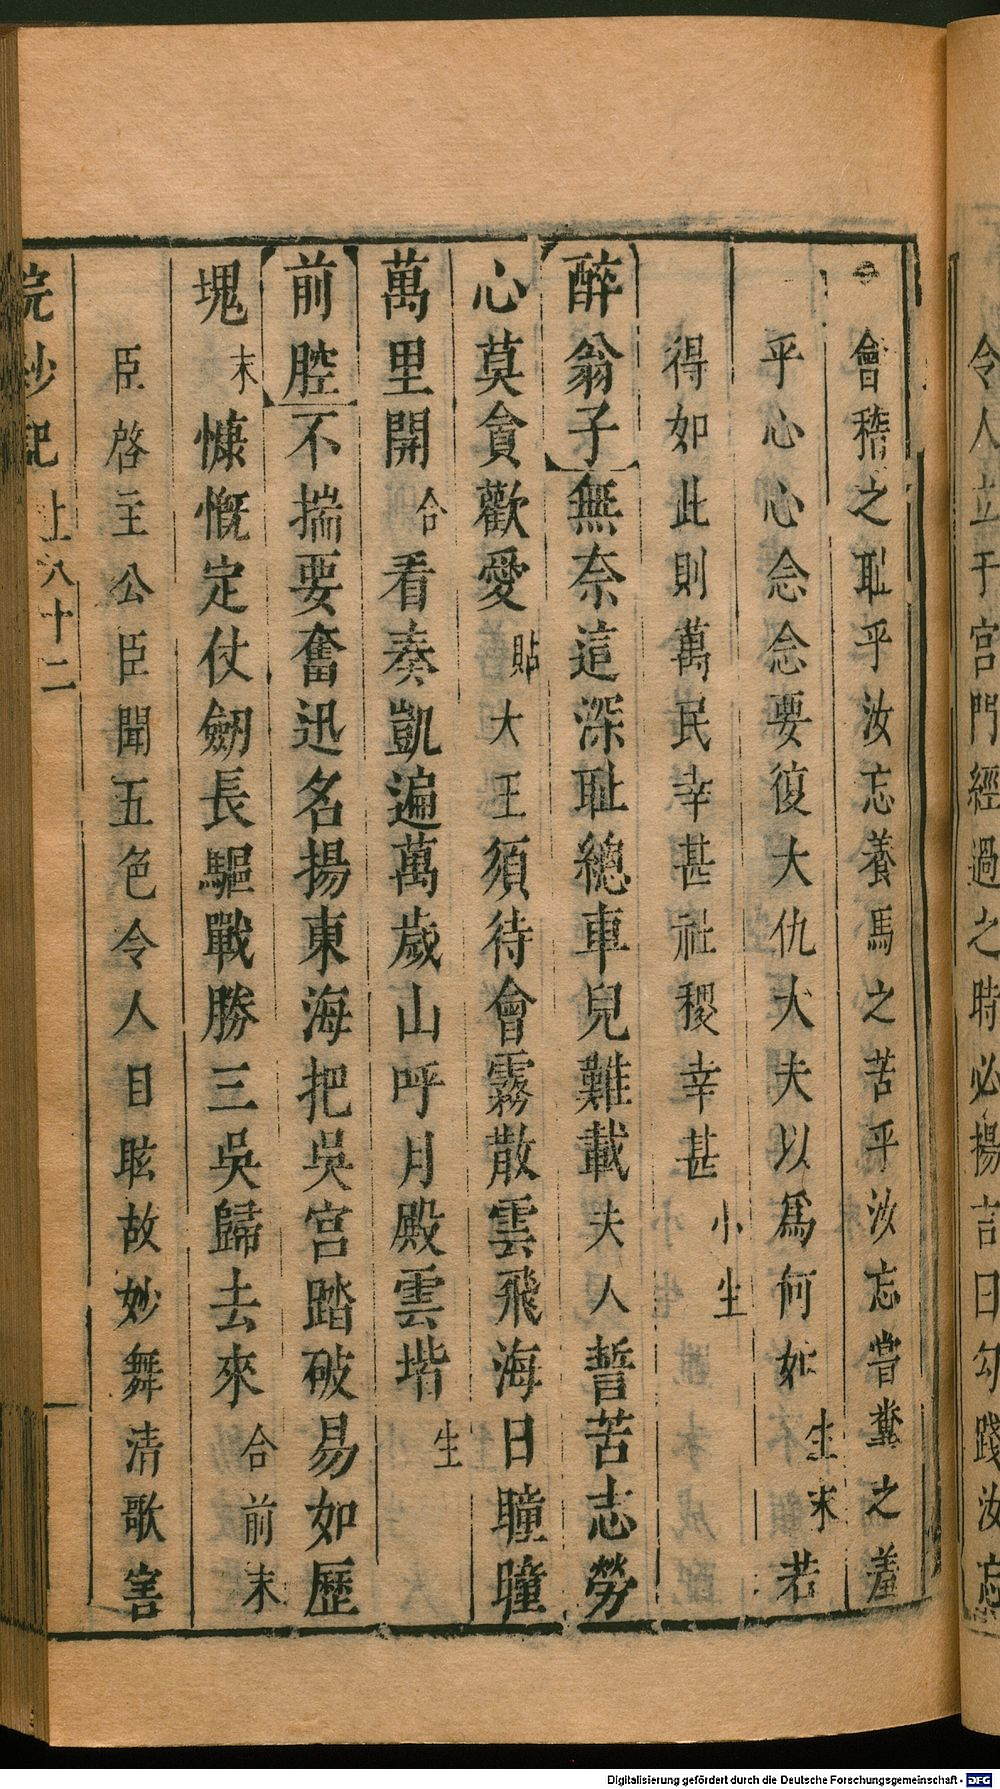 令人立于宮門經過之時必揚言曰勾踐汝忘
會稽之恥乎汝忘養馬之苦乎汝忘嘗糞之羞
乎心心念念要復大仇大夫以爲何如生末若
得如此則萬民幸甚社稷幸甚小生
醉翁子無奈這深耻總車兒難載夫人誓苦志勞
心莫貪歡愛貼大王須待會霧散雲飛海日瞳瞳
萬里開合看奏凱遍萬歲山呼月殿雲堦生
前腔不揣要奮迅名揚東海把吳宮踏破易如歷
塊末慷慨定仗劒長驅戰勝三吳歸去來合前末
臣啓主公臣聞五色令人目眩故妙舞清歌害
浣紗記 上 八十二
Digitalisierung gefördert durch die Deutsche Forschungsgemeinschaft - DFG